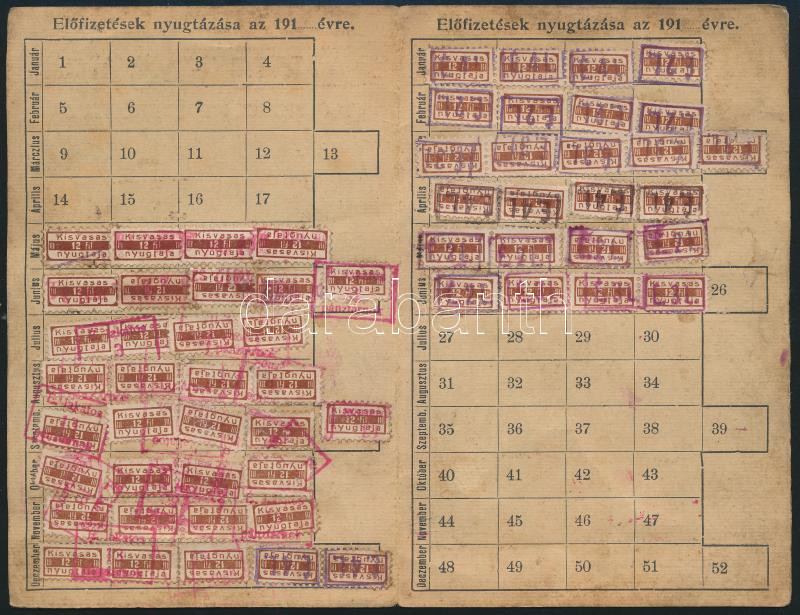 Előfizetések nyugtázása az 191 évre.
Január 1 2 3 4
Február 5 6 7 8
Márczius 9 10 11 12 13
Április 14 15 16 17
Május Kisvasas 12 fil nyugtaja Kisvasas 12 fil nyugtaja Kisvasas 12 fil nyugtaja Kisvasas 12 fil nyugtaja
Junius Kisvasas 12 fil nyugtaja Kisvasas 12 fil nyugtaja Kisvasas 12 fil nyugtaja Kisvasas 12 fil nyugtaja Kisvasas 12 fil nyugtaja
Julius Kisvasas 12 fil nyugtaja Kisvasas 12 fil nyugtaja Kisvasas 12 fil nyugtaja Kisvasas 12 fil nyugtaja
Augusztus Kisvasas 12 fil nyugtaja Kisvasas 12 fil nyugtaja Kisvasas 12 fil nyugtaja Kisvasas 12 fil nyugtaja
Szeptemb. Kisvasas 12 fil nyugtaja Kisvasas 12 fil nyugtaja Kisvasas 12 fil nyugtaja Kisvasas 12 fil nyugtaja Kisvasas 12 fil nyugtaja
Október Kisvasas 12 fil nyugtaja Kisvasas 12 fil nyugtaja Kisvasas 12 fil nyugtaja Kisvasas 12 fil nyugtaja
November Kisvasas 12 fil nyugtaja Kisvasas 12 fil nyugtaja Kisvasas 12 fil nyugtaja Kisvasas 12 fil nyugtaja
Deczember Kisvasas 12 fil nyugtaja Kisvasas 12 fil nyugtaja Kisvasas 12 fil nyugtaja Kisvasas 12 fil nyugtaja Kisvasas 12 fil nyugtaja
Előfizetések nyugtázása az 191 évre.
Január Kisvasas 12 fil nyugtaja Kisvasas 12 fil nyugtaja Kisvasas 12 fil nyugtaja Kisvasas 12 fil nyugtaja
Február Kisvasas 12 fil nyugtaja Kisvasas 12 fil nyugtaja Kisvasas 12 fil nyugtaja Kisvasas 12 fil nyugtaja
Márczius Kisvasas 12 fil nyugtaja Kisvasas 12 fil nyugtaja Kisvasas 12 fil nyugtaja Kisvasas 12 fil nyugtaja Kisvasas 12 fil nyugtaja
Április Kisvasas 12 fil nyugtaja Kisvasas 12 fil nyugtaja Kisvasas 12 fil nyugtaja Kisvasas 12 fil nyugtaja
Május Kisvasas 12 fil nyugtaja Kisvasas 12 fil nyugtaja Kisvasas 12 fil nyugtaja Kisvasas 12 fil nyugtaja
Junius Kisvasas 12 fil nyugtaja Kisvasas 12 fil nyugtaja Kisvasas 12 fil nyugtaja Kisvasas 12 fil nyugtaja 26
Julius 27 28 29 30
Augusztus 31 32 33 34
Szeptemb. 35 36 37 38 39
Október 40 41 42 43
November 44 45 46 47
Deczember 48 49 50 51 52
darabanth